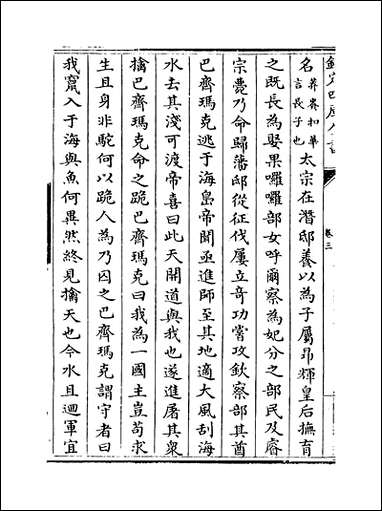 欽定四庫全書
卷三
名
莽賚扣華
言長子也
太宗在潛邸養以為子屬昂輝皇后撫育
之既長為娶果囉囉部女呼爾察為妃分之部民及睿
宗薨乃命歸藩邸從征伐屢立竒功嘗攻欽察部其酋
巴齊瑪克逃于海島帝聞亟進師至其地適大風刮海
水去其淺可渡帝喜曰此天開道與我也遂進屠其衆
擒巴齊瑪克命之跪巴齊瑪克曰我為一國主豈苟求
生且身非駝何以跪人為乃囚之巴齊瑪克謂守者曰
我竄入于海與魚何異然終見擒天也今水且迴軍宜